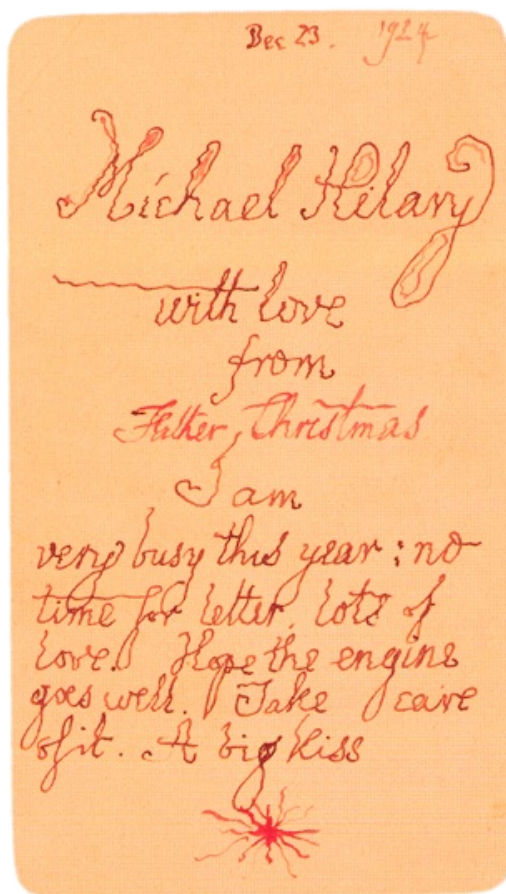 Dec 23. 1924
Michael Hilary
with love
from
Father Christmas
I am
very busy this year : no
time for letter. lots of
love. Hope the engine
goes well. Take care
of it. A big kiss